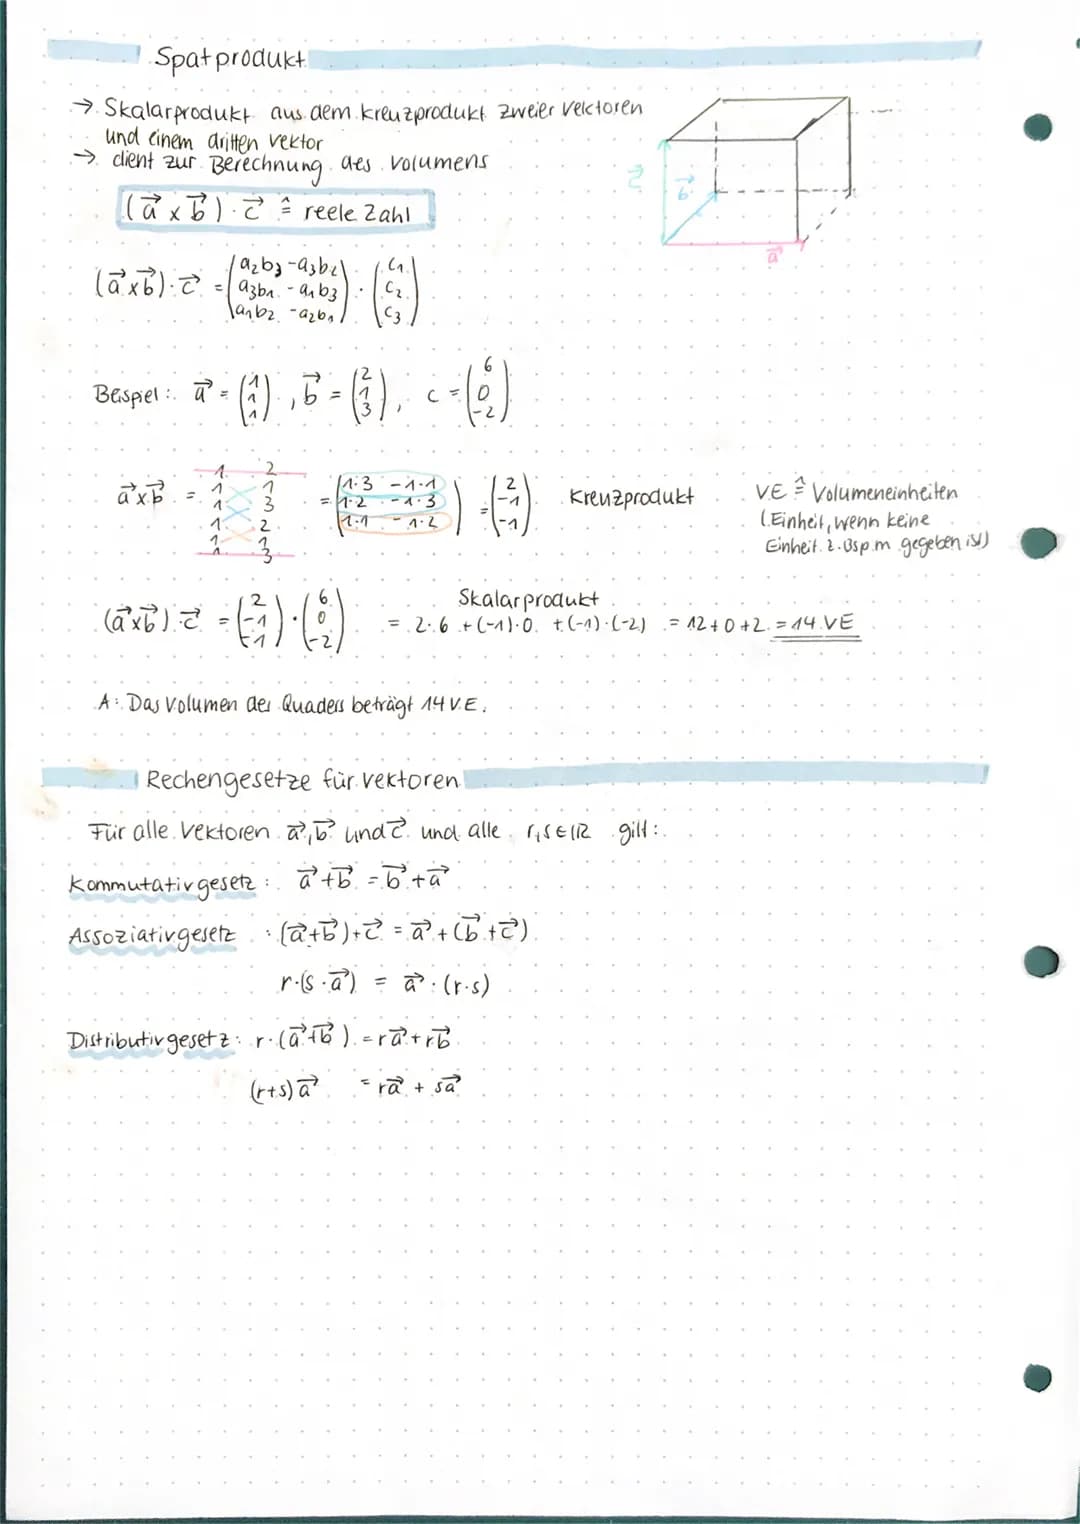 Spatprodukt
→ Skalarprodukt aus dem Kreuzprodukt zweier Vektoren
und einem dritten Vektor
→ dient zur Berechnung des Volumens
(a⃗ x b⃗) · c⃗ ≙ reele Zahl
c⃗ b⃗ a⃗
(a⃗ x b⃗) · c⃗ = (a₂b₃ - a₃b₂, a₃b₁ - a₁b₃, a₁b₂ - a₂b₁) · (c₁, c₂, c₃)
Beispiel: a⃗ = (1, 1, 1), b⃗ = (2, 1, 3), c = (6, 0, -2)
a⃗ x b⃗ =
1 2
1 1
1 3
1 2
1 1
1 3
= (1·3 - 1·1, 1·2 - 1·3, 1·1 - 1·2) = (2, -1, -1) Kreuzprodukt
VE ≙ Volumeneinheiten
(Einheit, wenn keine
Einheit z.Bsp. m gegeben ist)
Skalarprodukt
(a⃗ x b⃗) · c⃗ = (2, -1, -1) · (6, 0, -2) = 2·6 + (-1)·0 + (-1)·(-2) = 12 + 0 + 2 = 14 VE
A: Das Volumen des Quaders beträgt 14 V.E.
Rechengesetze für Vektoren
Für alle Vektoren a⃗, b⃗ und c⃗ und alle r, s ∈ ℝ gilt:
Kommutativgesetz: a⃗ + b⃗ = b⃗ + a⃗
Assoziativgesetz : (a⃗ + b⃗) + c⃗ = a⃗ + (b⃗ + c⃗)
r·(s·a⃗) = a⃗·(r·s)
Distributivgesetz: r·(a⃗ + b⃗) = ra⃗ + rb⃗
(r+s)a⃗ = ra⃗ + sa⃗